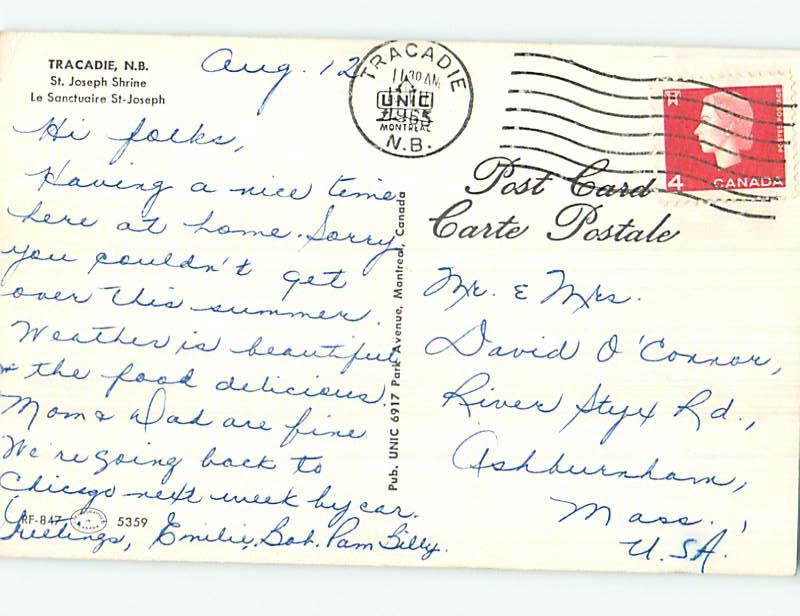 TRACADIE, N.B.
St. Joseph Shrine
Le Sanctuaire St-Joseph
Aug. 12
Hi folks,
Having a nice time
here at home. Sorry
you couldn't get
over this summer.
Weather is beautiful
& the food delicious.
Mom & Dad are fine
We're going back to
Chicago next week by car.
Greetings, Emilie, Bob. Pam Billy.
RF-847 5359
Pub. UNIC 6917 Park Avenue, Montreal, Canada
TRACADIE
11 30 AM
UNIC
1965
MONTREAL
N.B.
POSTES POSTAGE
4 CANADA
Post Card
Carte Postale
Mr. & Mrs.
David O'Connor,
River Styx Rd.,
Ashburnham,
Mass.,
U.S.A.